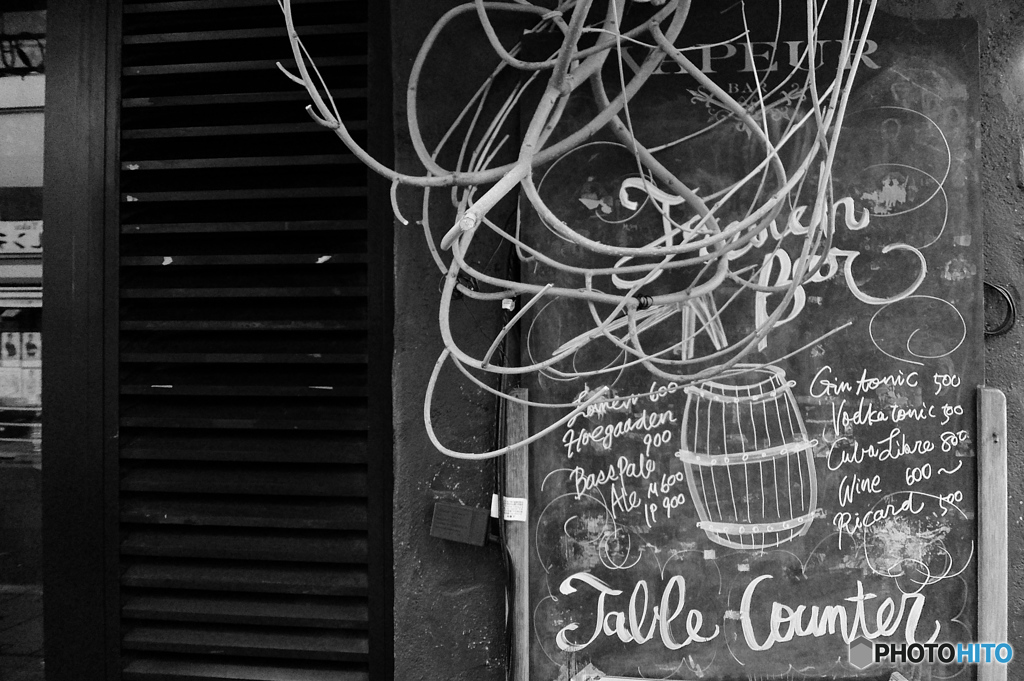 VAPEUR
BAR
Bar
600
Hoegaaden
900
Bass Pale
Ale M 600
1P 900
Gin tonic 500
Vodka tonic 500
Cuba Libre 800
Wine 600〜
Ricard 500
Table Counter
PHOTOHITO